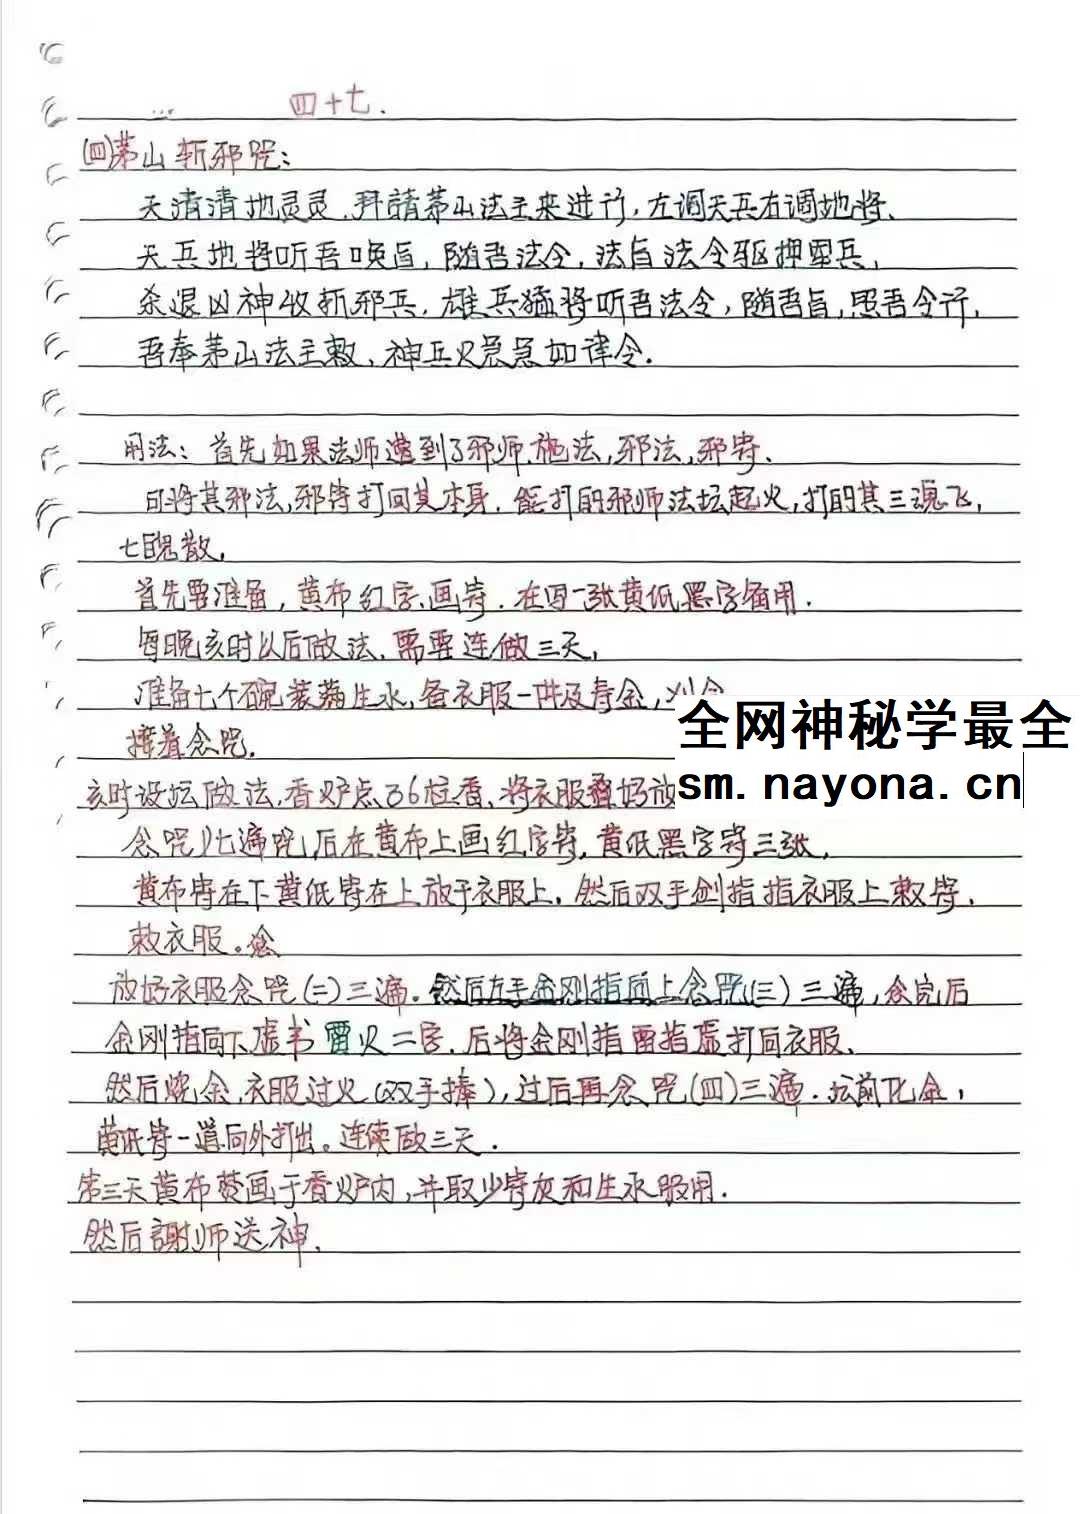 四十七.
(四)茅山斩邪咒:
天清清地灵灵,拜請茅山法主来进行,左调天兵右调地将、
天兵地将听吾唤旨,随吾法令,法旨法令驱押雷兵,
杀退凶神收斩邪兵,雄兵猛将听吾法令,随吾旨,照吾令行,
吾奉茅山法主敕、神兵火急急如律令.
用法:首先如果法师遭到了邪师施法,邪法,邪符、
可将其邪法,邪符打回其本身.能打的邪师法坛起火,打的其三魂飞,
七魄散,
首先要准备,黄布红字画符.在写一张黄纸黑字备用.
每晚亥时以后做法,需要连做三天,
准备七个碗装满生水,备衣服一件及寿金,刈金
捧着念咒.
亥时设坛做法,香炉点36柱香、将衣服叠好放
念咒(七遍咒)后在黄布上画红字符,黄纸黑字符三张,
黄布符在下黄纸符在上放于衣服上.然后双手剑指指衣服上敕符,
敕衣服。念
放好衣服念咒(二)三遍.然后左手金刚指向上念咒(三)三遍,念完后
金刚指向下虚书雷火二字.后将金刚指雷指虚打向衣服、
然后烧金,衣服过火(双手捧),过后再念咒(四)三遍.坛前化金,
黄纸符一道向外打出。连续做三天.
第三天黄布焚画于香炉内,并取少符灰和生水服用.
然后謝师送神、
全网神秘学最全
sm.nayona.cn